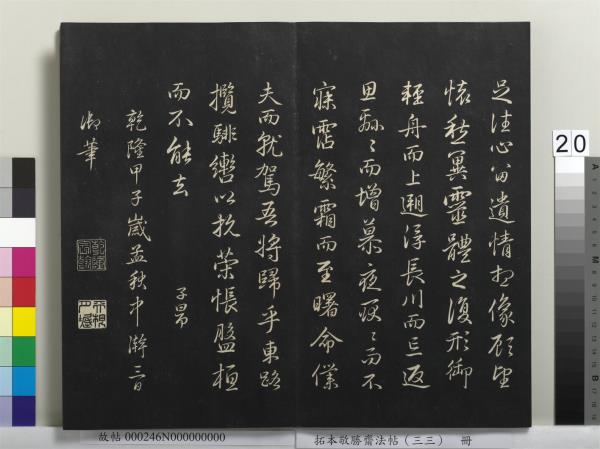 足往心留遺情想像顧望
懷愁冀靈體之復形御
輕舟而上遡浮長川而忘返
思緜々而增慕夜耿々而不
寐霑繁霜而至曙命僕
夫而就駕吾將歸乎東路
攬騑轡以抗策悵盤桓
而不能去
子昂
乾隆甲子歲孟秋中澣三日
御筆
20
A
B
故帖 000246N000000000
拓本敬勝齋法帖（三三） 冊